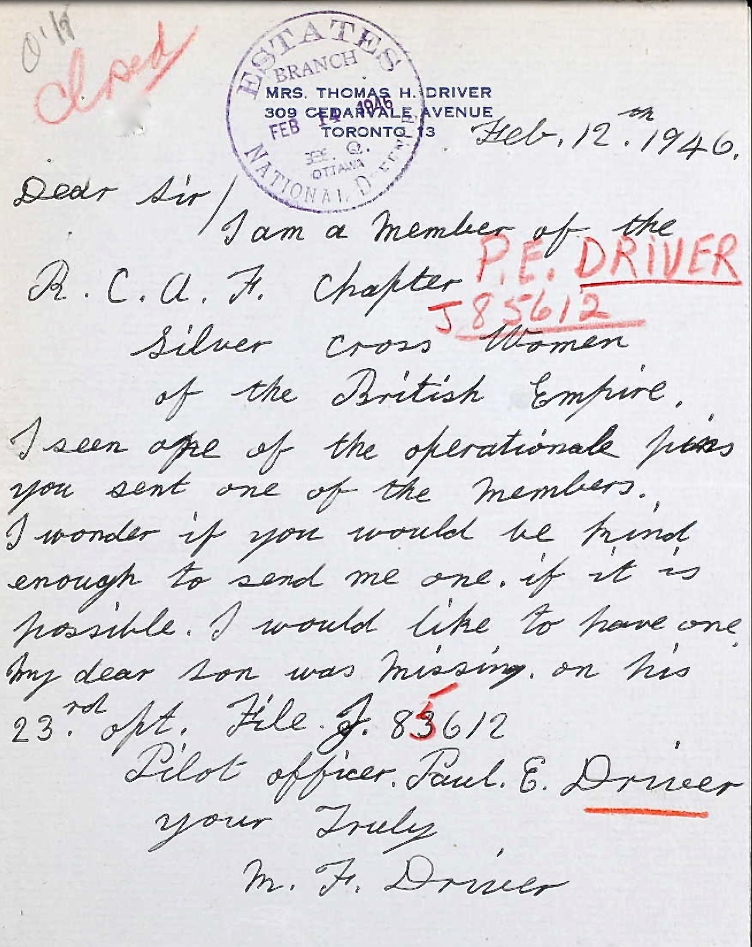 O/R
Closed
ESTATES
BRANCH
FEB 14 1946
OTTAWA
NATIONAL DEFENCE
MRS. THOMAS H. DRIVER
309 CEDARVALE AVENUE
TORONTO 13
Feb. 12.th 1946.
Dear Sir/
I am a Member of the
R. C. A. F. Chapter
P.E. DRIVER
J85612
Silver Cross Women
of the British Empire.
I seen one of the operationale pins
you sent one of the Members.
I wonder if you would be kind
enough to send me one. if it is
possible. I would like to have one
My dear son was Missing. on his
23.rd opt. File J. 83612
5
Pilot officer. Paul. E. Driver
your Truly
M. F. Driver